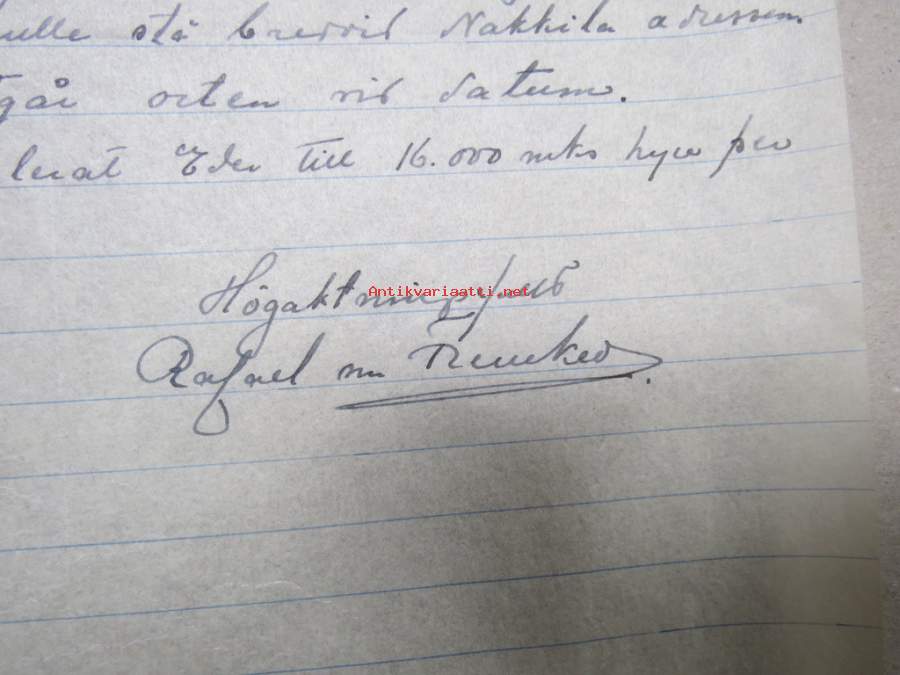 ulle stå bredvid Nakkila adressen
går orten vid datum.
lerat Eder till 16.000 mks hyra per
Högaktningsfullt
Antikvariaatti.net
Rafael von Frenckell.